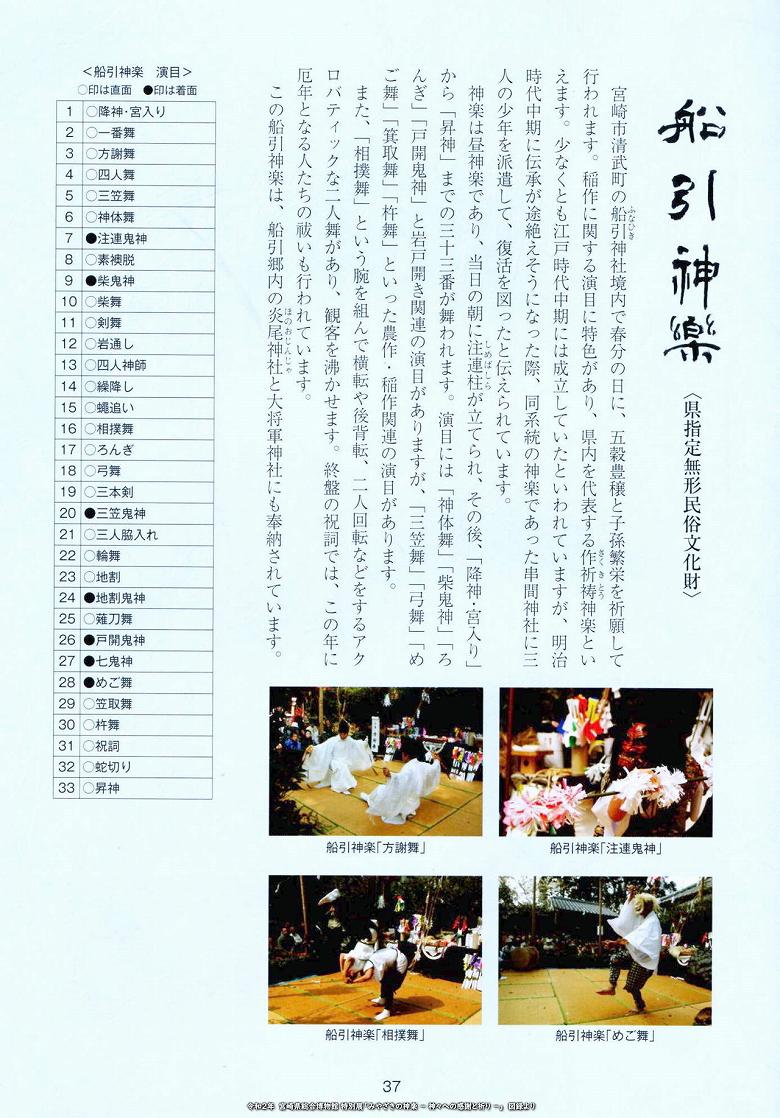 船引神樂
〈県指定無形民俗文化財〉
宮崎市清武町の船引神社境内で春分の日に、五穀豊穣と子孫繁栄を祈願して
ふなひき
行われます。稲作に関する演目に特色があり、県内を代表する作祈祷神楽とい
さくきとう
えます。少なくとも江戸時代中期には成立していたといわれていますが、明治
時代中期に伝承が途絶えそうになった際、同系統の神楽であった串間神社に三
人の少年を派遣して、復活を図ったと伝えられています。
神楽は昼神楽であり、当日の朝に注連柱が立てられ、その後、「降神・宮入り」
しめばしら
から「昇神」までの三十三番が舞われます。演目には「神体舞」「柴鬼神」「ろ
んぎ」「戸開鬼神」と岩戸開き関連の演目がありますが、「三笠舞」「弓舞」「め
ご舞」「箕取舞」「杵舞」といった農作・稲作関連の演目があります。
また、「相撲舞」という腕を組んで横転や後背転、二人回転などをするアク
ロバティックな二人舞があり、観客を沸かせます。終盤の祝詞では、この年に
厄年となる人たちの祓いも行われています。
この船引神楽は、船引郷内の炎尾神社と大将軍神社にも奉納されています。
ほのおじんじゃ
＜船引神楽　演目＞
○印は直面　●印は着面
1 ○降神・宮入り
2 ○一番舞
3 ○方謝舞
4 ○四人舞
5 ○三笠舞
6 ○神体舞
7 ●注連鬼神
8 ○素襖脱
9 ●柴鬼神
10 ○柴舞
11 ○剣舞
12 ○岩通し
13 ○四人神師
14 ○繰降し
15 ○蠅追い
16 ○相撲舞
17 ○ろんぎ
18 ○弓舞
19 ○三本剣
20 ●三笠鬼神
21 ○三人脇入れ
22 ○輪舞
23 ○地割
24 ●地割鬼神
25 ○薙刀舞
26 ●戸開鬼神
27 ●七鬼神
28 ●めご舞
29 ○笠取舞
30 ○杵舞
31 ○祝詞
32 ○蛇切り
33 ○昇神
船引神楽「方謝舞」
船引神楽「注連鬼神」
船引神楽「相撲舞」
船引神楽「めご舞」
37
令和2年　宮崎県総合博物館 特別展「みやざきの神楽 － 神々への感謝と祈り －」 図録より